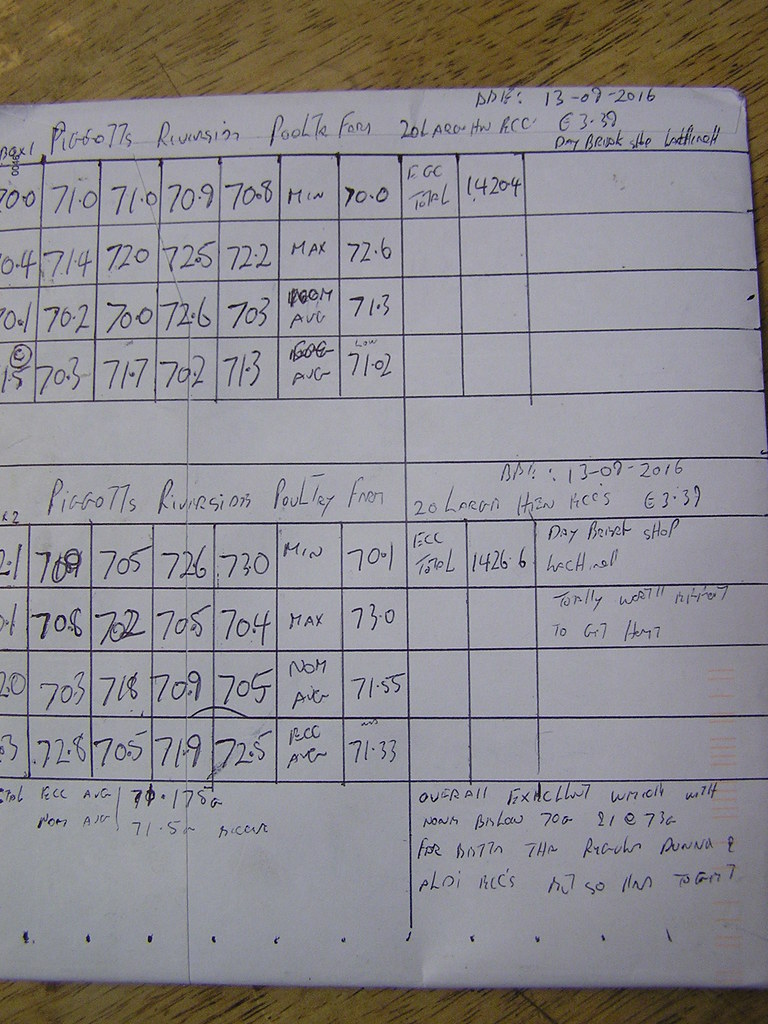 BOX 1 PIGGOTTS RIVERSIDE POULTRY FARM 20 LARGE HEN EGG
BBE: 13-09-2016
£3.39
DAY BREAK SHOP
70.0 71.0 71.0 70.9 70.8 MIN 70.0 EGG TOTAL 1420.4
70.4 71.4 72.0 72.5 72.2 MAX 72.6
70.1 70.2 70.0 72.6 70.3 NOM AVG 71.3
71.5 70.3 71.7 70.2 71.3 EGG AVG 71.02
PIGGOTTS RIVERSIDE POULTRY FARM
BBE: 13-09-2016
20 LARGE HEN EGG'S £3.39
2.1 70.5 72.6 73.0 MIN 70.1 EGG TOTAL 1426.6 DAY BREAK SHOP
.1 70.8 70.2 70.5 70.4 MAX 73.0 TOTALLY WORTH
TO GET
2.0 70.3 71.8 70.9 70.5 NOM AVG 71.55
.3 72.8 70.5 71.9 72.5 EGG AVG 71.33
EGG AVG 71.175G
NOM AVG 71.5G
OVERALL EXCELLENT WEIGHT WITH
NONE BELOW 70G 21 @ 73G
FAR BETTER THE REGULAR DUNNE &
ALDI EGG'S BUT SO HARD TO GET